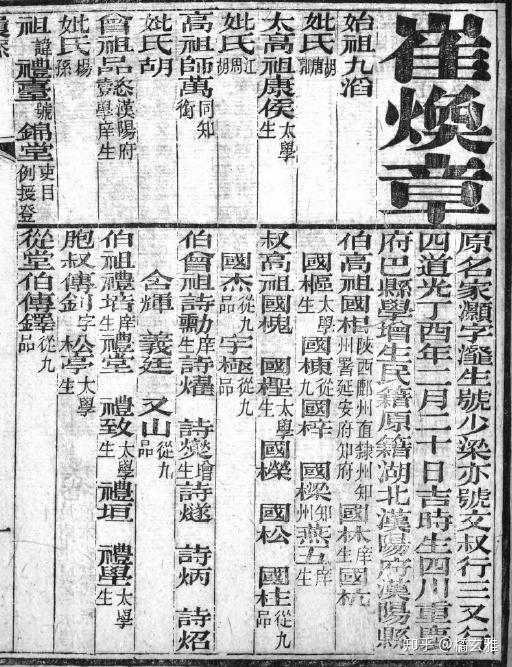 崔煥章
原名家灝字瀣生號少梁亦號文叔行三又行
四道光丁酉年二月二十日吉時生四川重慶
府巴縣學增生民籍原籍湖北漢陽府漢陽縣
始祖九滔
妣氏胡唐郭
太高祖康侯太學生
妣氏江周胡
高祖師萬同知銜
妣氏胡
曾祖品鏊漢陽府學庠生
妣氏楊孫
祖諱禮臺號錦堂吏目例授登
伯高祖國杞陝西鄜州直隸州知州署延安府知府國林庠生國杭
國樞太學生國棟從九國梓國樑知州燕五庠生
叔高祖國槐國檉太學生國嶸國松國柱從九品
國杰從九品宇極從九品
伯曾祖詩勳庠生詩燿詩燮增生詩燧詩炳詩炤
含輝義廷又山從九品
伯祖禮培庠生禮堂禮致太學生禮垣禮學太學生
胞叔傳鈳字松亭太學生
從堂伯傳鐸從九品
知乎 @橘玄雅